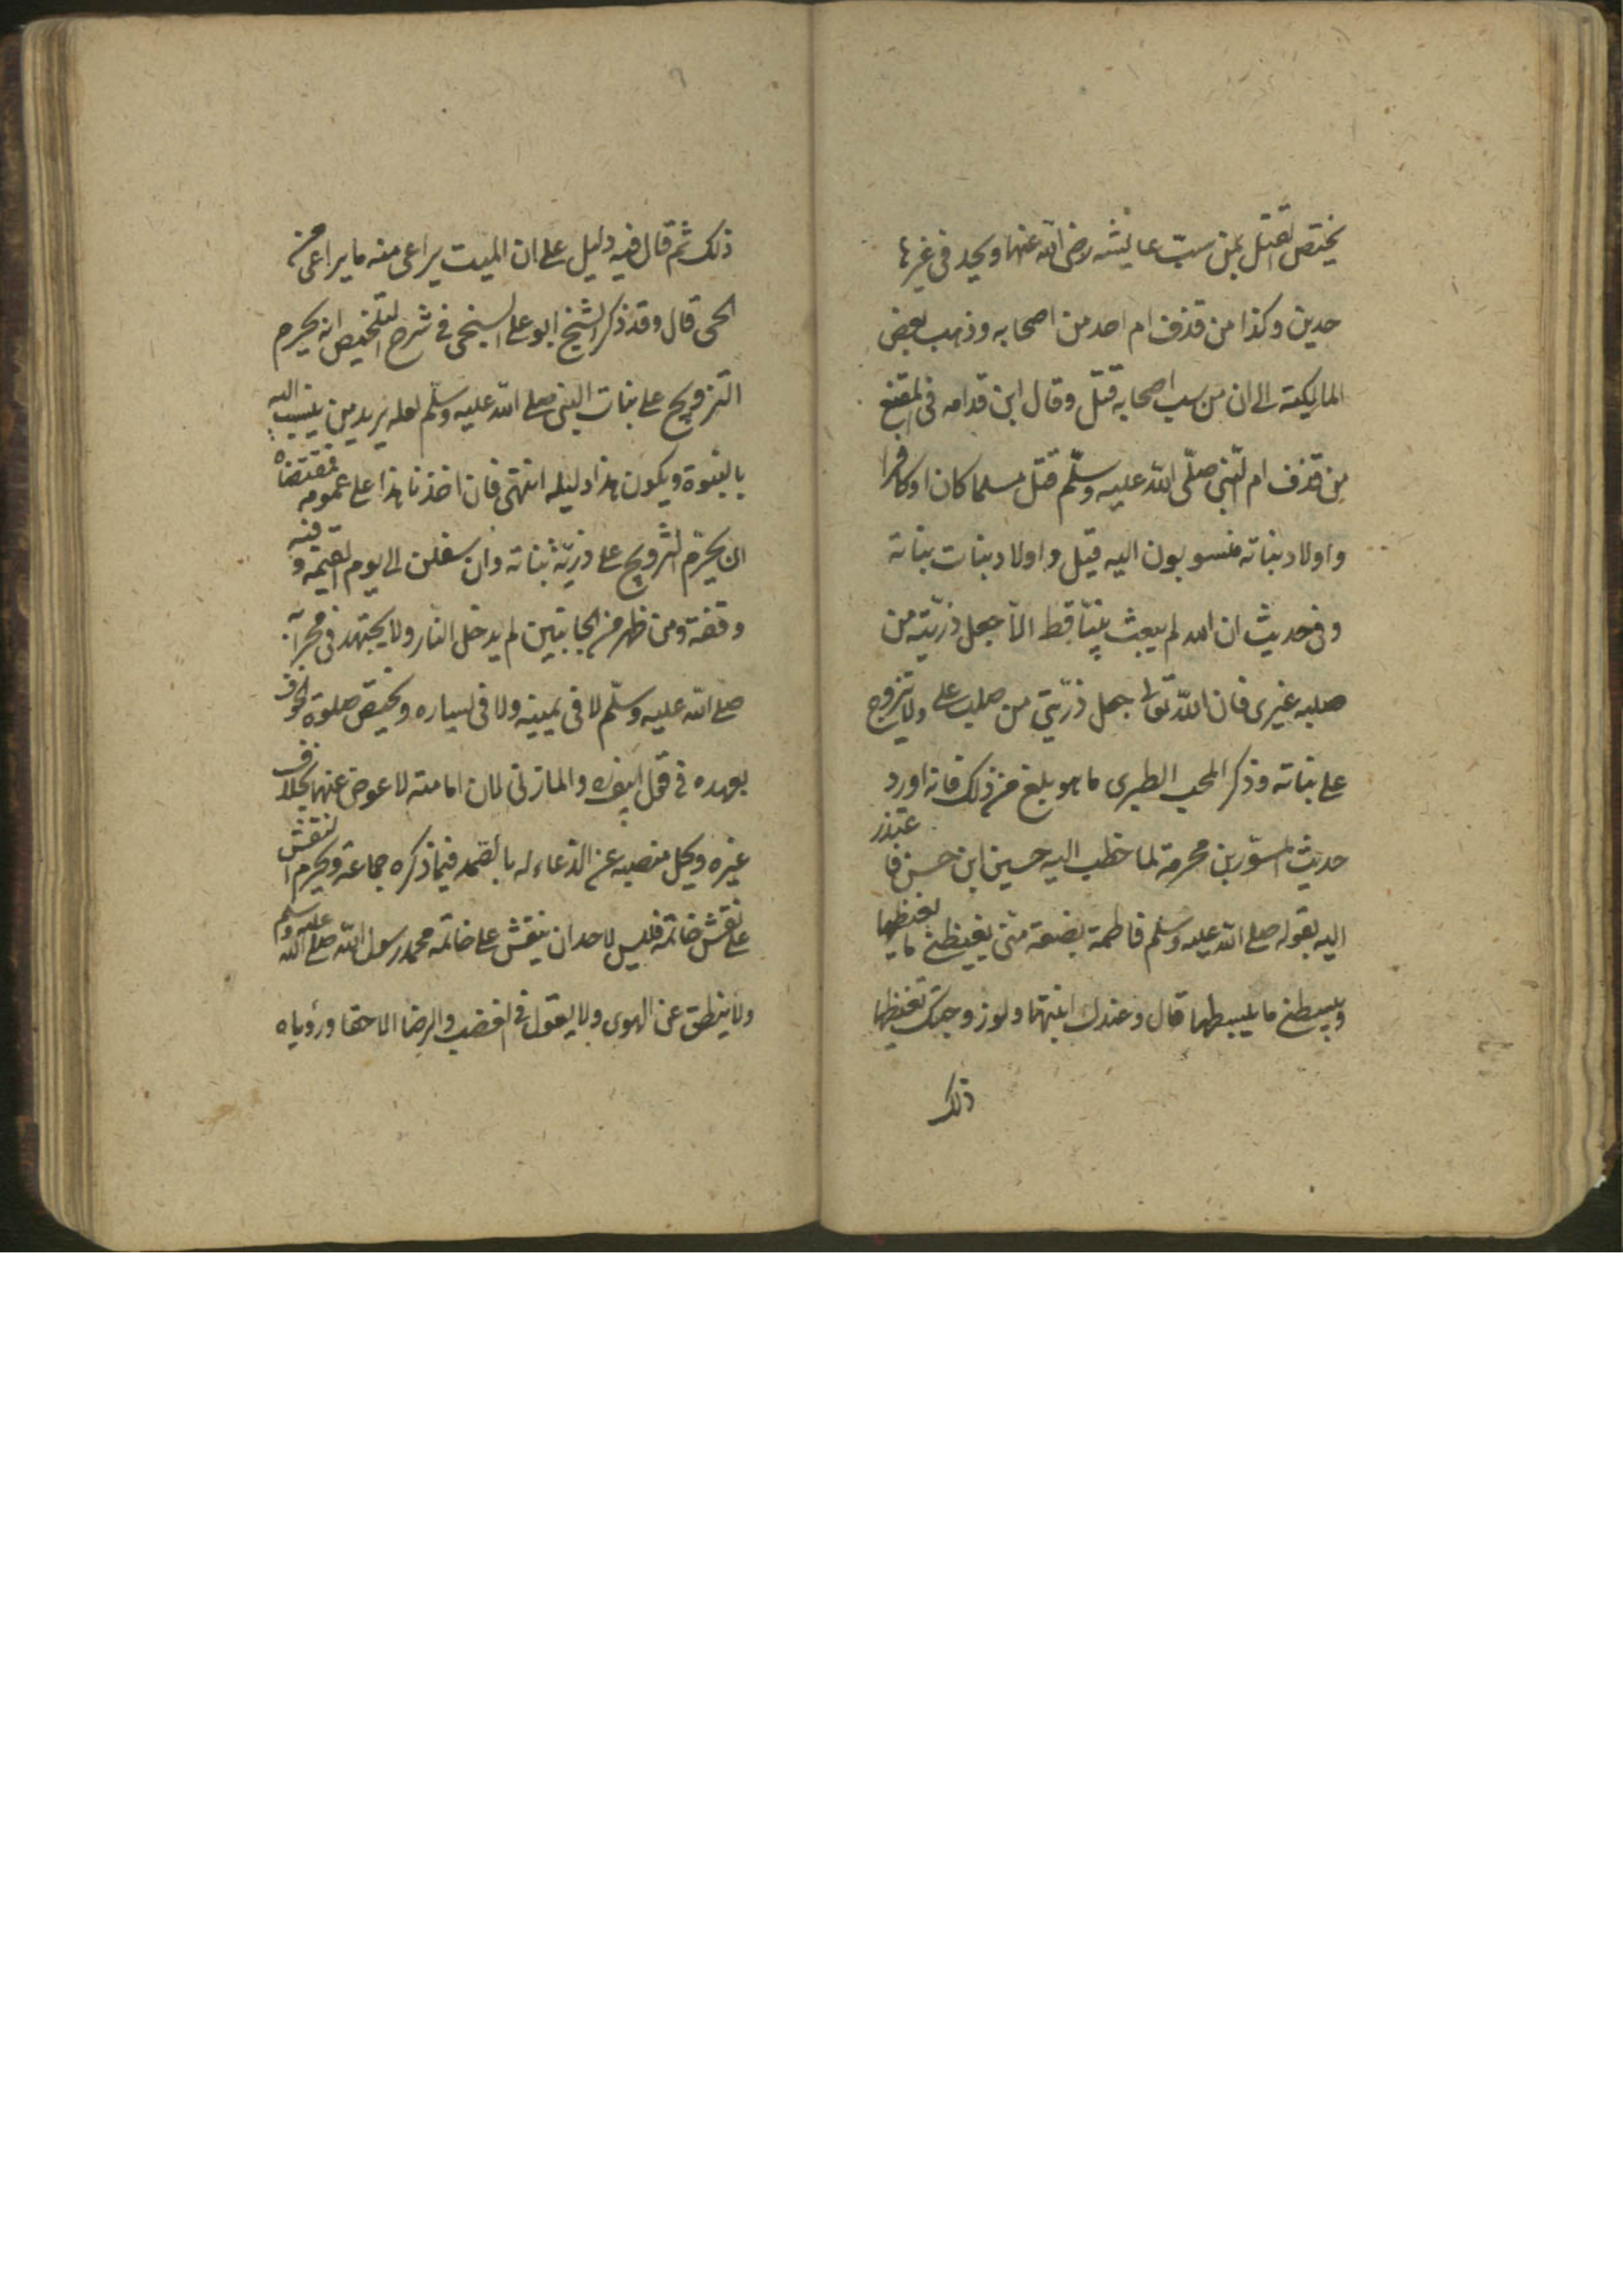 يختص القتل بمن سبّ عايشه رضى الله عنها ويحد فى غيرها
حدين وكذا من قذف ام احد من اصحابه وذهب بعض
المالكية الى ان من سب اصحابه قتل وقال ابن قدامه فى المقنع
من قذف ام النّبى صلّى الله عليه وسلّم قتل مسلما كان او كافرا
واولاد بناته منسوبون اليه قيل واولاد بنات بناته
وفى حديث ان الله لم يبعث نبيّا قط الّا جعل ذرّيته من
صلبه غيرى فان الله تعالى جعل ذرّيتى من صلب على ولا يتزوج
على بناته وذكر المحب الطبرى ما هو بلغ من ذلك فانه اورد
حديث المسوّر بن مخرمة لما خطب اليه حسين ابن حسن فاعتذر
اليه بقوله صلى الله عليه وسلم فاطمة بضعة منّى يغيظنى ما يغيظها
ويبسطنى ما يبسطها قال وعندك ابنتها ولو زوجتك تغيظها
ذلك
ذلك ثم قال فيه دليل على ان الميت يراعى منه ما يراعى من
الحى قال وقد ذكر الشيخ ابو على السنجى فى شرح التلخيص انه يحرم
التزويج على بنات النبى صلى الله عليه وسلّم لعله يريد من ينسب اليه
بالنبوة ويكون هذا دليله انتهى فان اخذنا هذا على عمومه فمقتضاه
ان يحرّم التزويج على ذريّة بناته وان سفلن الى يوم القيمة وفيه
وقفة ومن ظهر من الجانبين لم يدخل النار ولا يجتهد فى محرابه
صلى الله عليه وسلّم لا فى يمينه ولا فى يساره ويختص صلوة الخوف
بعهده فى قول ابى يوسف والمازنى لان امامته لا عوض عنها بخلاف
غيره ويجل منصبه عن الدّعاء له بالرحمة فيما ذكره جماعة ويحرم النقش
على نقش خاتمه فليس لاحد ان ينقش على خاتمه محمد رسول الله صلى الله عليه وسلم
ولا ينطق عن الهوى ولا يقول فى الغضب والرضا الا حقا ورؤياه